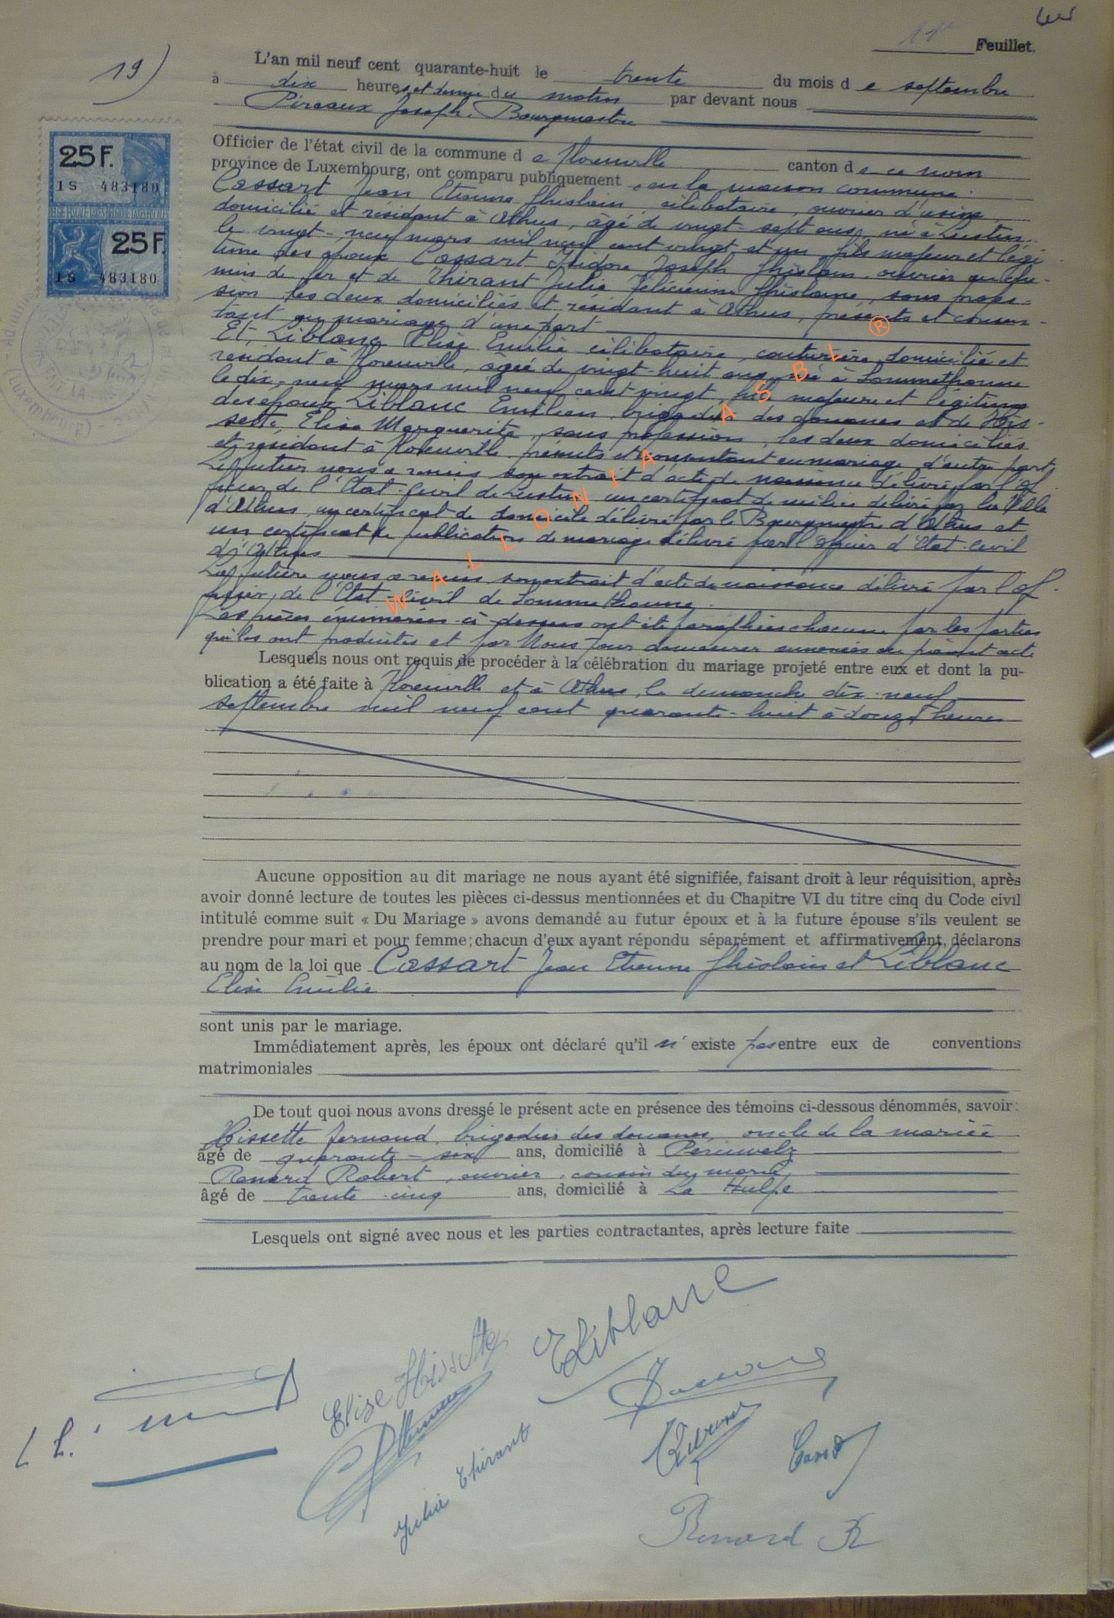 11e Feuillet.
19)
L'an mil neuf cent quarante-huit le trente du mois de septembre
à dix heures et demie du matin par devant nous
Pireaux Joseph, Bourgmestre
25 F.
1S 483180
25 F.
1S 483180
Officier de l'état civil de la commune de Florenville canton de ce nom
province de Luxembourg, ont comparu publiquement, en la maison commune:
Cassart Jean Etienne Ghislain, célibataire, ouvrier d'usine,
domicilié et résidant à Athus, âgé de vingt-sept ans, né à Lustin,
le vingt-neuf mars mil neuf cent vingt et un, fils majeur et légi-
time des époux Cassart Isidore Joseph Ghislain, ouvrier au che-
min de fer et de Thirant Julia Félicienne Ghislaine, sans profes-
sion, les deux domiciliés et résidant à Athus, présents et consen-
tant au mariage d'une part
Et, Liblanc Elise Emilie célibataire, couturière, domiciliée et
résidant à Florenville, âgée de vingt-huit ans, née à Sommethonne
le dix-neuf mars mil neuf cent vingt, fille majeure et légitime
des époux Liblanc Emilien, brigadier des douanes et de His-
sette, Elise Marguerite, sans profession, les deux domiciliés
et résidant à Florenville, présents et consentant au mariage, d'autre part
Le futur nous a remis son extrait d'acte de naissance délivré par l'of-
ficier de l'Etat-civil de Lustin, un certificat de milice délivré par la Ville
d'Athus, un certificat de domicile délivré par le Bourgmestre d'Athus et
un certificat de publication de mariage délivré par l'Officier d'Etat-civil
d'Athus
La future nous a remis son extrait d'acte de naissance délivré par l'of-
ficier de l'Etat-civil de Sommethonne.
Les pièces énumérées ci-dessus ont été paraphées chacune par les parties
qui les ont produites et par Nous pour demeurer annexées au présent acte
Lesquels nous ont requis de procéder à la célébration du mariage projeté entre eux et dont la pu-
blication a été faite à Florenville et à Athus, le dimanche dix-neuf
septembre mil neuf cent quarante-huit à douze heures
WALLONIA ASBL ®
Aucune opposition au dit mariage ne nous ayant été signifiée, faisant droit à leur réquisition, après
avoir donné lecture de toutes les pièces ci-dessus mentionnées et du Chapitre VI du titre cinq du Code civil
intitulé comme suit « Du Mariage » avons demandé au futur époux et à la future épouse s'ils veulent se
prendre pour mari et pour femme; chacun d'eux ayant répondu séparément et affirmativement, déclarons
au nom de la loi que Cassart Jean Etienne Ghislain et Liblanc
Elise Emilie
sont unis par le mariage.
Immédiatement après, les époux ont déclaré qu'il n'existe pas entre eux de conventions
matrimoniales
De tout quoi nous avons dressé le présent acte en présence des témoins ci-dessous dénommés, savoir:
Hissette Fernand, brigadier des douanes, oncle de la mariée
âgé de quarante-six ans, domicilié à Péruwelz
Renard Robert, ouvrier, cousin du marié
âgé de trente-cinq ans, domicilié à La Hulpe
Lesquels ont signé avec nous et les parties contractantes, après lecture faite
ELiblanc
Elise Hissette
Julia Thirant
Renard R